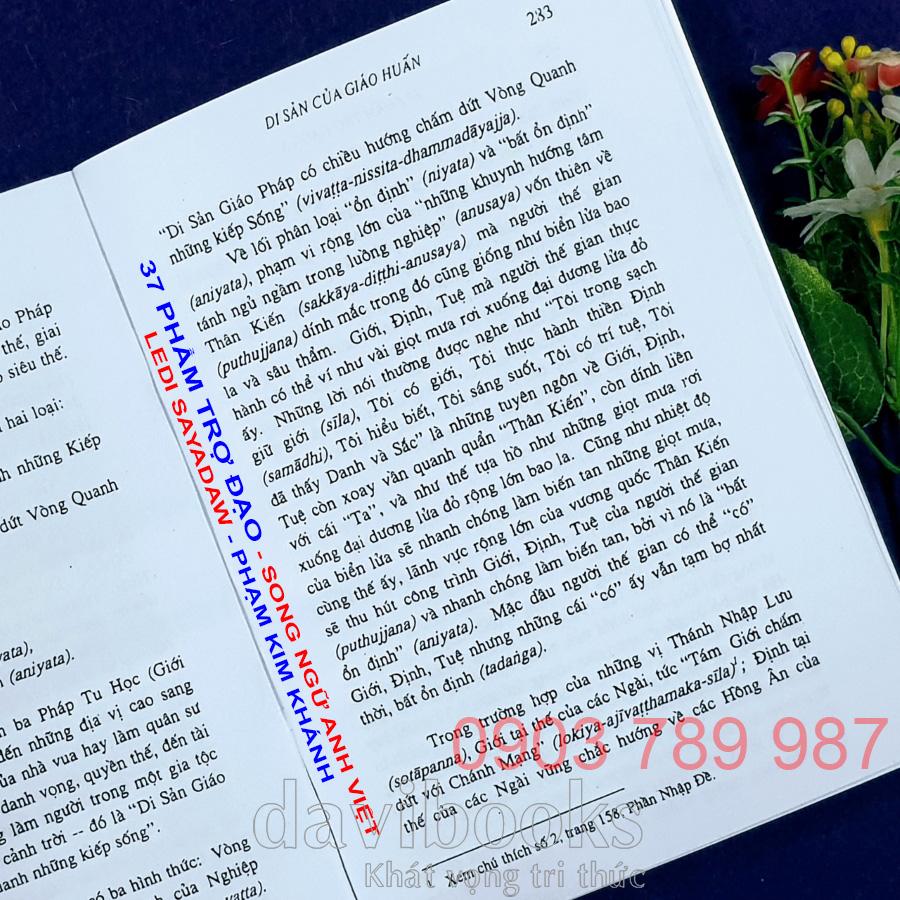 ạo Pháp
thế, giai
siêu thế.
hai loại:
h những Kiếp
dứt Vòng Quanh
(aniyata).
n ba Pháp Tu Học (Giới
đến những địa vị cao sang
của nhà vua hay làm quân sư
danh vọng, quyền thế, đến tài
g làm người trong một gia tộc
cảnh trời -- đó là “Di Sản Giáo
anh những kiếp sống”.
có ba hình thức: Vòng
của Nghiệp
283
DI SẢN CỦA GIÁO HUẤN
“Di Sản Giáo Pháp có chiều hướng chấm dứt Vòng Quanh
những kiếp Sống” (vivaṭṭa-nissita-dhammadāyajja).
Về lối phân loại “ổn định” (niyata) và “bất ổn định”
(aniyata), phạm vi rộng lớn của “những khuynh hướng tâm
tánh ngủ ngầm trong luồng nghiệp” (anusaya) vốn thiên về
Thân Kiến (sakkāya-diṭṭhi-anusaya) mà người thế gian
(puthujjana) dính mắc trong đó cũng giống như biển lửa bao
la và sâu thẳm. Giới, Định, Tuệ mà người thế gian thực
hành có thể ví như vài giọt mưa rơi xuống đại dương lửa đỏ
ấy. Những lời nói thường được nghe như “Tôi trong sạch
giữ giới (sīla), Tôi có giới, Tôi thực hành thiền Định
(samādhi), Tôi hiểu biết, Tôi sáng suốt, Tôi có trí tuệ, Tôi
đã thấy Danh và Sắc” là những tuyên ngôn về Giới, Định,
Tuệ còn xoay vần quanh quẩn “Thân Kiến”, còn dính liền
với cái “Ta”, và như thế tựa hồ như những giọt mưa rơi
xuống đại dương lửa đỏ rộng lớn bao la. Cũng như nhiệt độ
của biển lửa sẽ nhanh chóng làm biến tan những giọt mưa,
cùng thế ấy, lãnh vực rộng lớn của vương quốc Thân Kiến
sẽ thu hút công trình Giới, Định, Tuệ của người thế gian
(puthujjana) và nhanh chóng làm biến tan, bởi vì nó là “bất
ổn định” (aniyata). Mặc dầu người thế gian có thể “có”
Giới, Định, Tuệ nhưng những cái “có” ấy vẫn tạm bợ nhất
thời, bất ổn định (tadaṅga).
Trong trường hợp của những vị Thánh Nhập Lưu
(sotāpanna), Giới tại thế của các Ngài, tức “Tám Giới chấm
dứt với Chánh Mạng” (lokiya-ajīvaṭṭhamaka-sīla)¹; Định tại
thế của các Ngài vững chắc hướng về các Hồng Ân của
1 Xem chú thích số 2, trang 158, Phần Nhập Đề.
37 PHẨM TRỢ ĐẠO - SONG NGỮ ANH VIỆT
LEDI SAYADAW - PHẠM KIM KHÁNH
0903 789 987
davibooks
Khát vọng tri thức